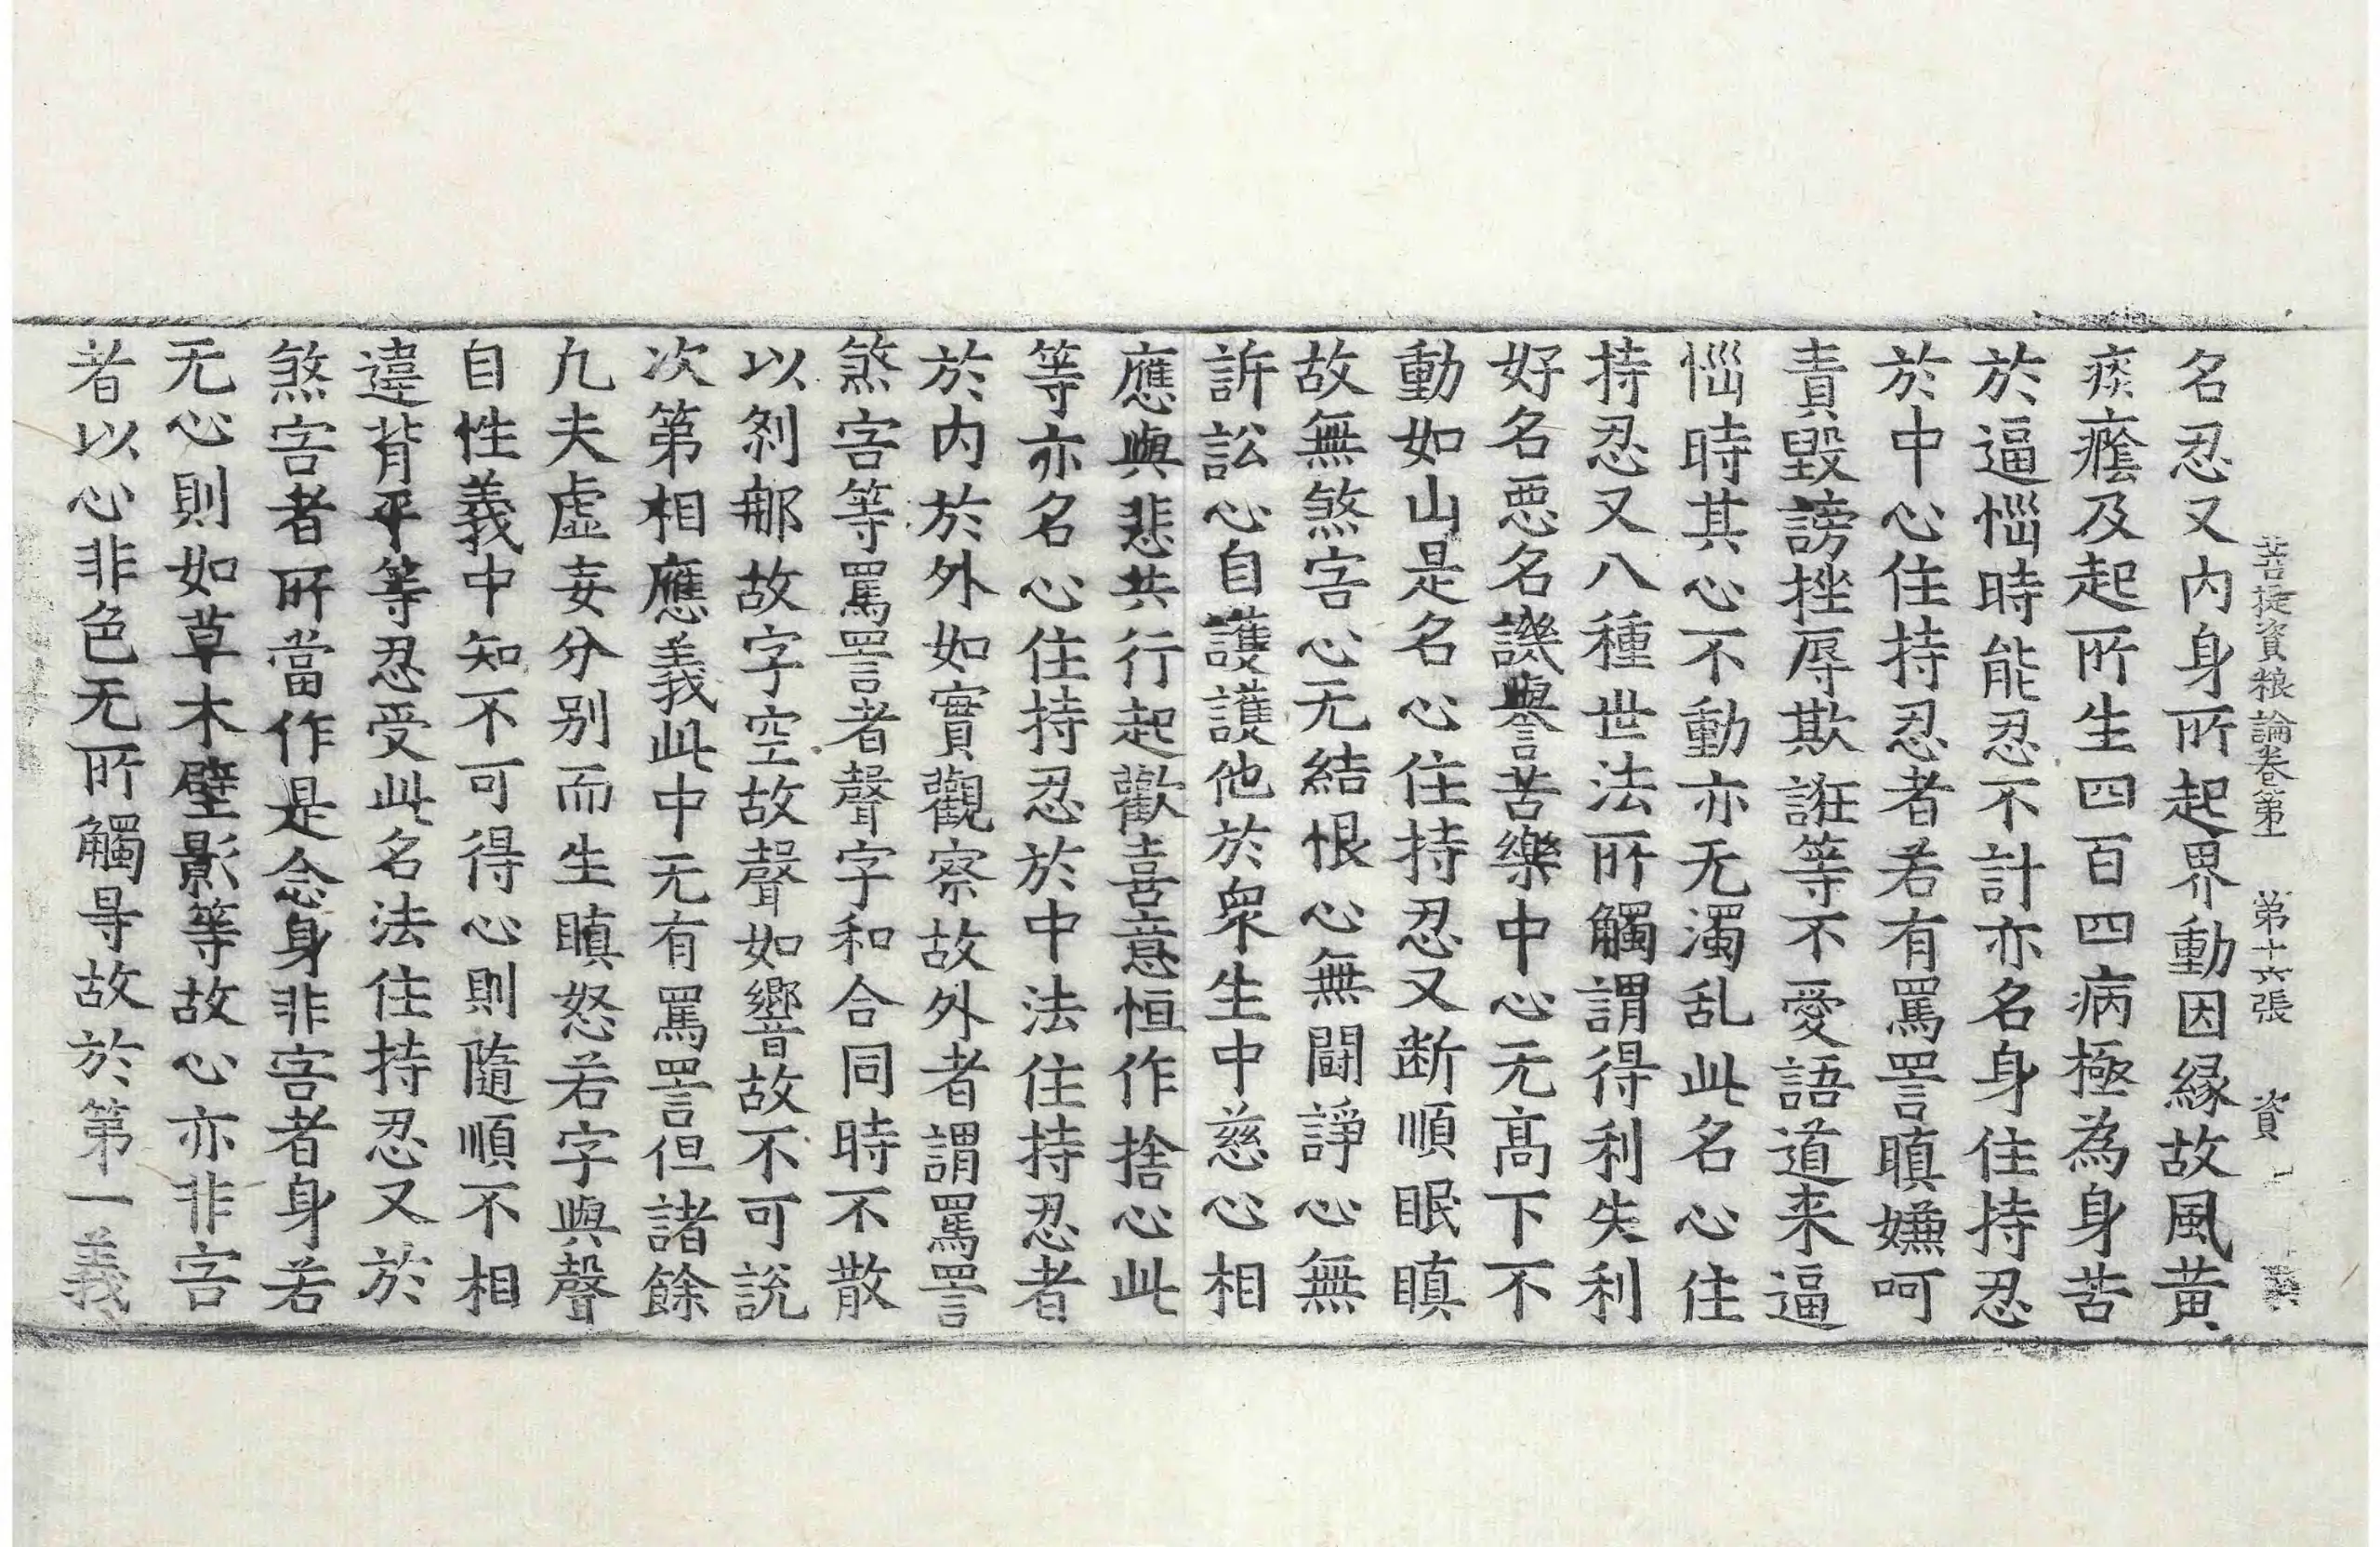 菩提資粮論卷第一 第十六張 資
名忍又内身所起界動因緣故風黄
痰癊及起所生四百四病極為身苦
於逼惱時能忍不計亦名身住持忍
於中心住持忍者若有罵詈瞋嫌呵
責毀謗挫辱欺誑等不愛語道来逼
惱時其心不動亦无濁乱此名心住
持忍又八種世法所觸謂得利失利
好名惡名譏譽苦樂中心无髙下不
動如山是名心住持忍又断順眠瞋
故無煞害心无結恨心無鬪諍心無
訴訟心自護護他於衆生中慈心相
應與悲共行起歡喜意恒作捨心此
等亦名心住持忍於中法住持忍者
於内於外如實觀察故外者謂罵詈
煞害等罵詈者聲字和合同時不散
以刹那故字空故聲如響故不可說
次第相應義此中无有罵詈但諸餘
凢夫虛妄分別而生瞋怒若字與聲
自性義中知不可得心則隨順不相
違背平等忍受此名法住持忍又於
煞害者所當作是念身非害者身若
无心則如草木壁影等故心亦非害
者以心非色无所觸㝵故於第一義